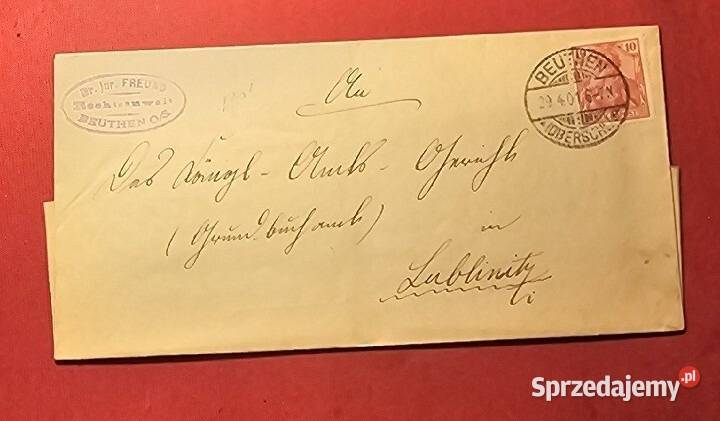 Dr. jur. FREUND
Rechtsanwalt
BEUTHEN O/S.
An
BEUTHEN
29.4.01 6-7N
(OBERSCHL.)
10
Das Königl - Amts - Gericht
(Grundbuchamt)
in
Lublinitz
Sprzedajemy.pl